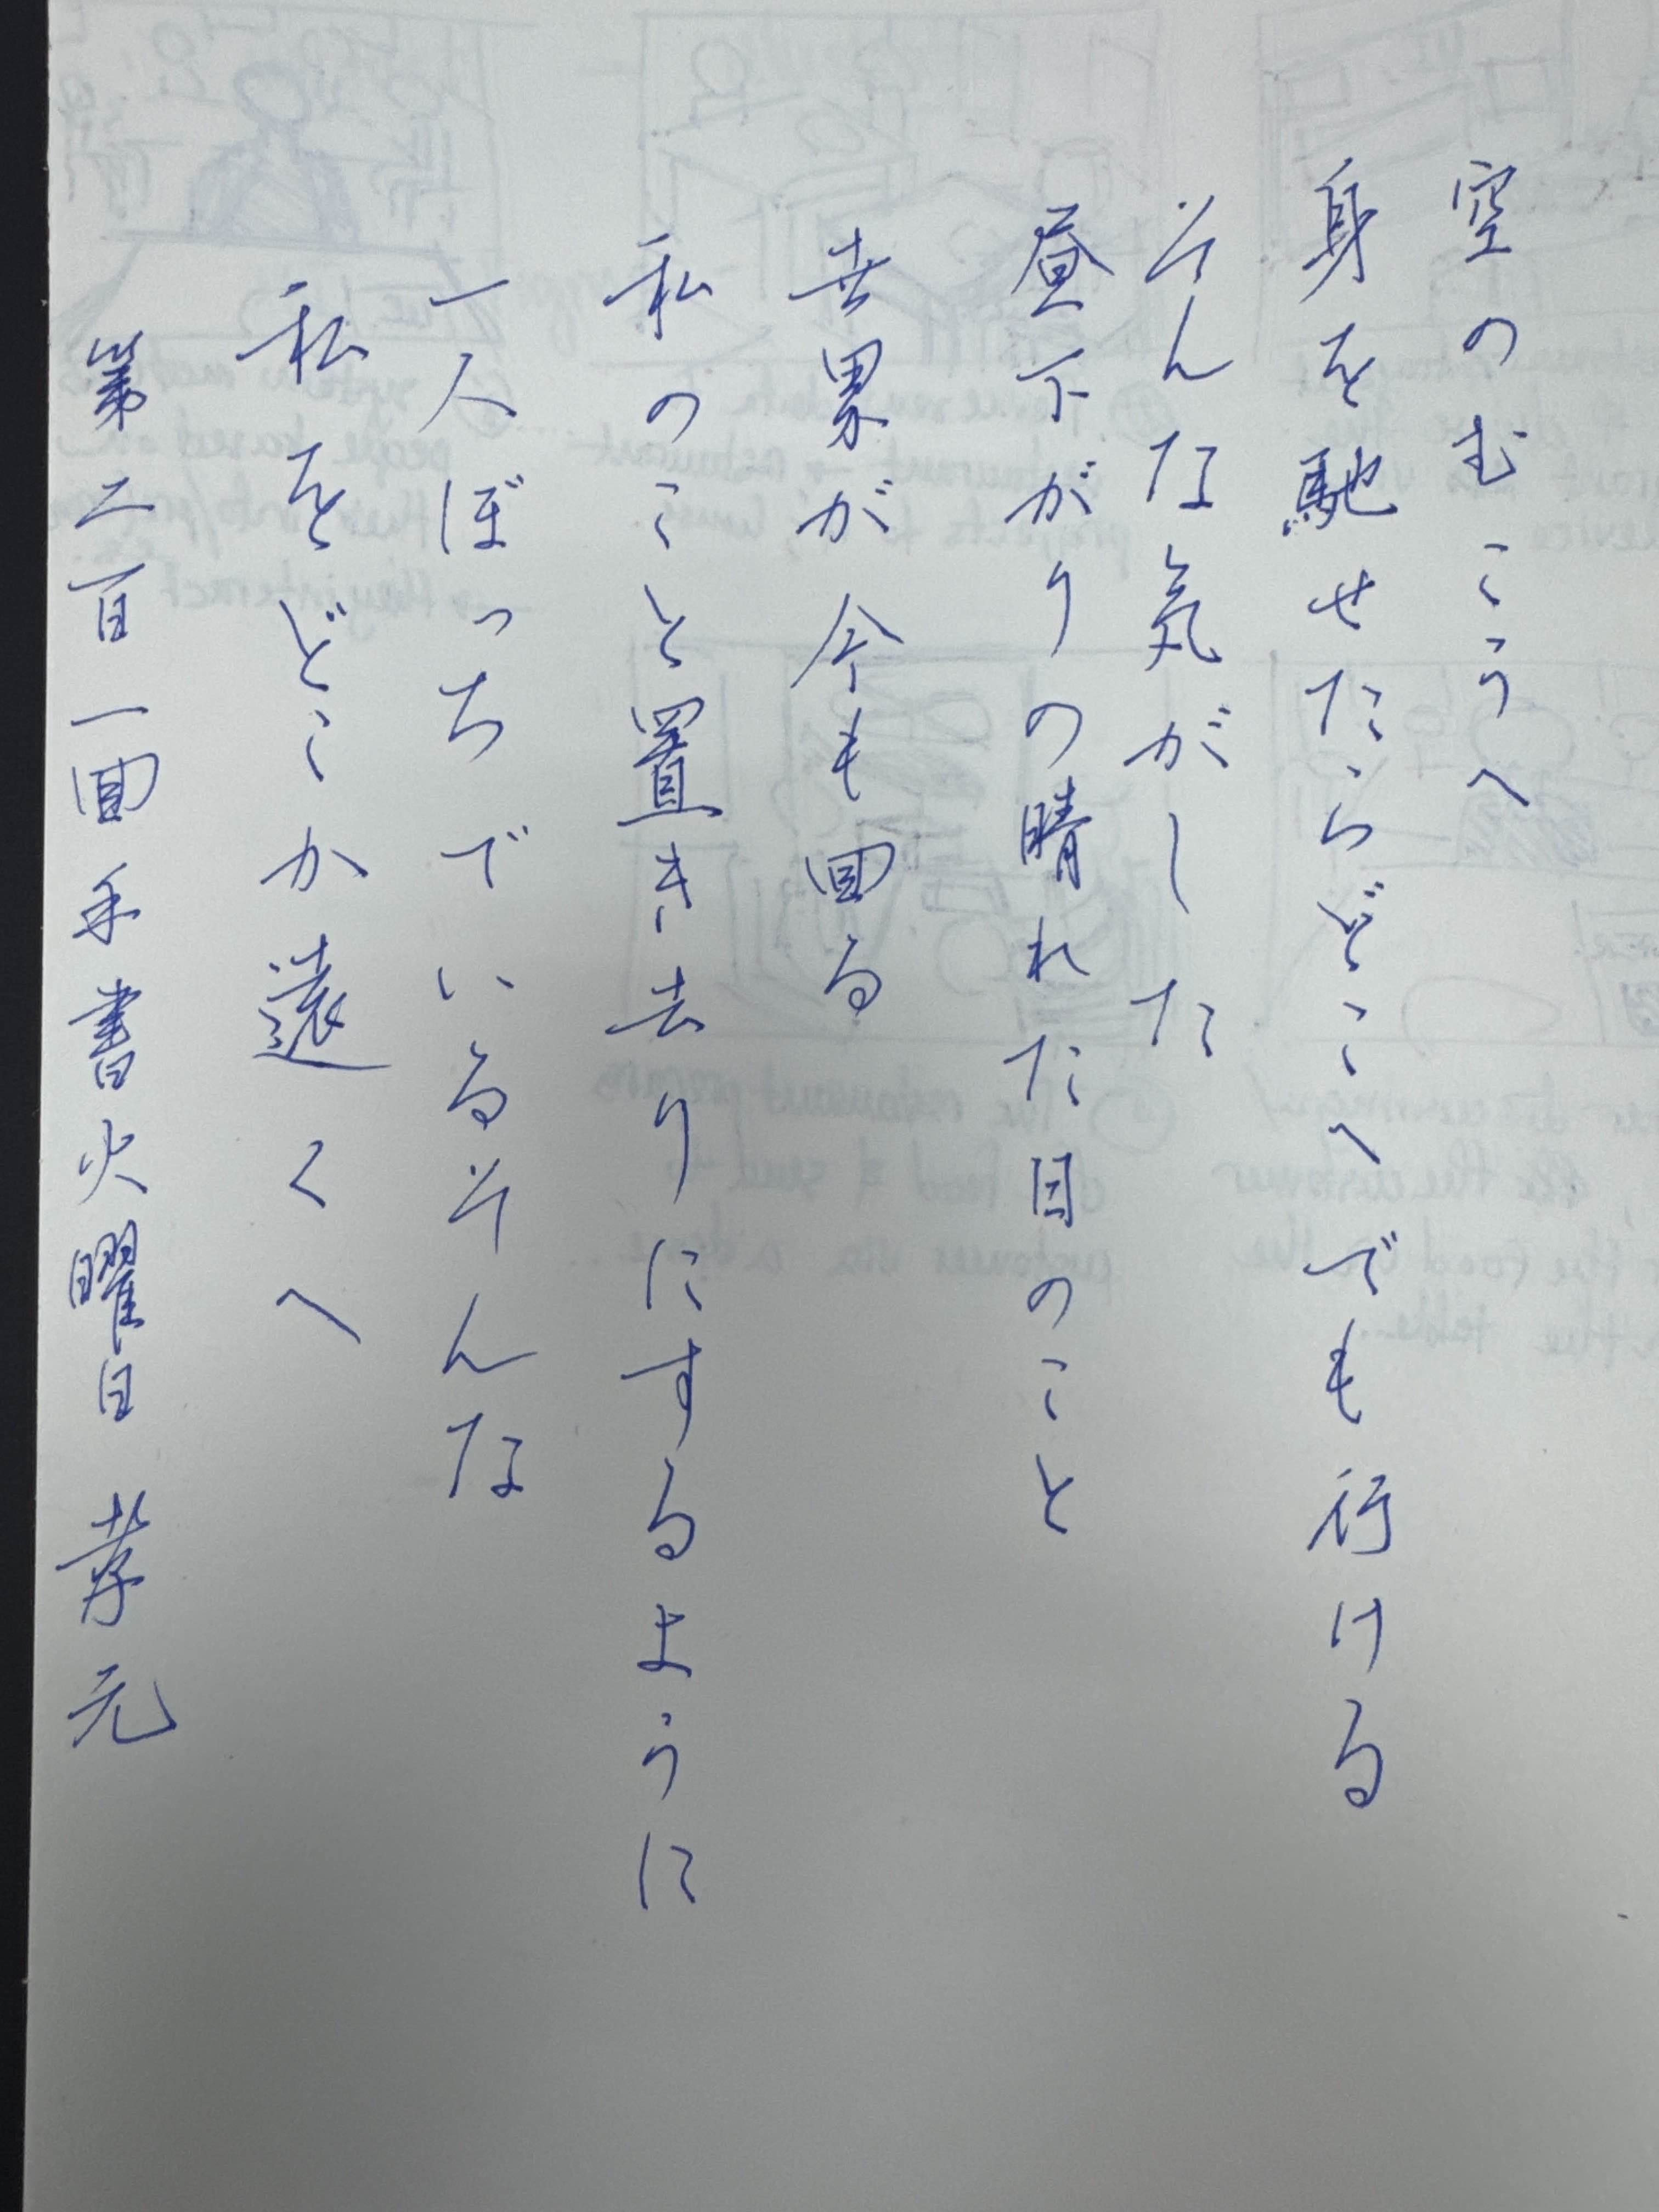 空のむこうへ
身を馳せたらどこへでも行ける
そんな気がした
昼下がりの晴れた日のこと
世界が今も回る
私のこと置き去りにするように
一人ぼっちでいるそんな
私をどこか遠くへ
第二百一回手書火曜日 孝元